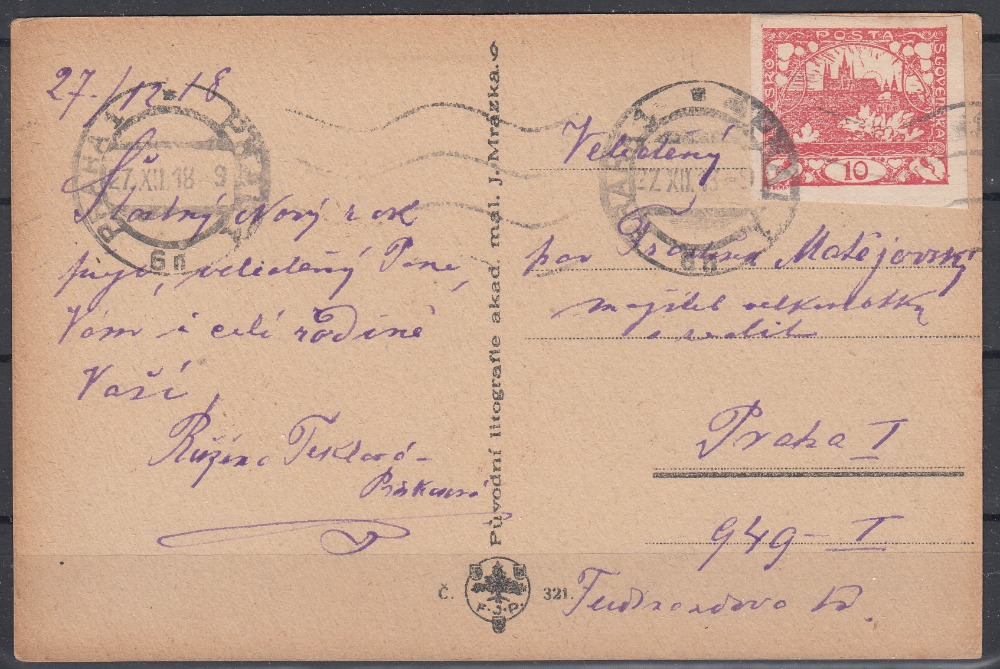 27./12 18
Šťastný Nový rok
přeje, velectěný Pane,
Vám i celé rodině
Vaší,
Růžena Teklová-
PRAHA 1
27.XII.18-9
6n
Původní litografie akad. mal. J. Mrázka.
Č. 321.
F.J.P.
POSTA
ČESKO-SLOVENSKÁ
10
PRAHA 1
27.XII.18-9
6n
Velectěný
pan Matějovský
majitel velkoobchodu
Praha I
949-I
Ferdinandova tř.